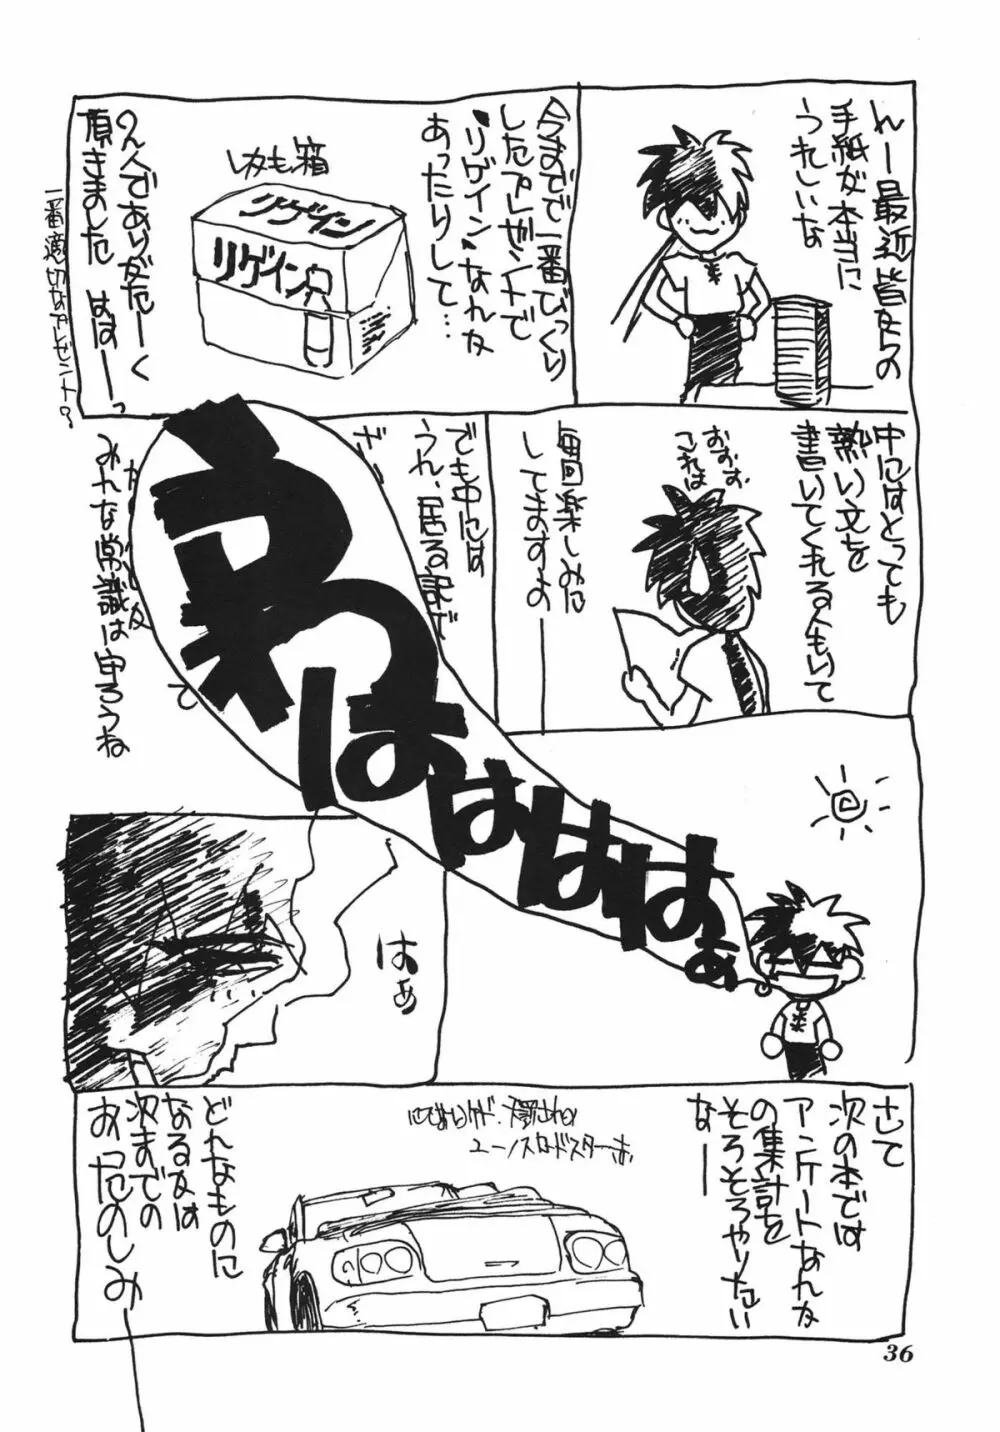 んー最近皆なの
手紙が本当に
うれしいな
今までで一番びっくり
したプレゼントで
"リゲイン"なんな
あったりして…
しかも箱
リゲイン
リゲイン
のんでありがたーく
頂きました はは——っ
一番適切なプレゼント?
中にはとっても
熱い文を
書いてくれる人もいて
おおお
これは
毎回楽しみに
してますよの——
でも中には
うれ
居る訳で
て
みんな常識は守ろうね
わはははははぁ
はぁ
さて
次の本では
アンケートなんな
の集計を
そろそろやりたい
なー
ユーノスロードスター
どんなものに
なるかは
次までの
おったのしみ——
36